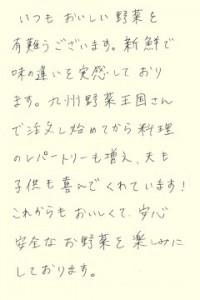 いつも おいしい 野菜を
有難うございます。新鮮で
味の違いを実感しており
ます。九州野菜王国さん
で注文し始めてから料理
のレパートリーも増え、夫も
子供も喜んでくれています!
これからも おいしくて、安心
安全なお野菜を楽しみに
しております。